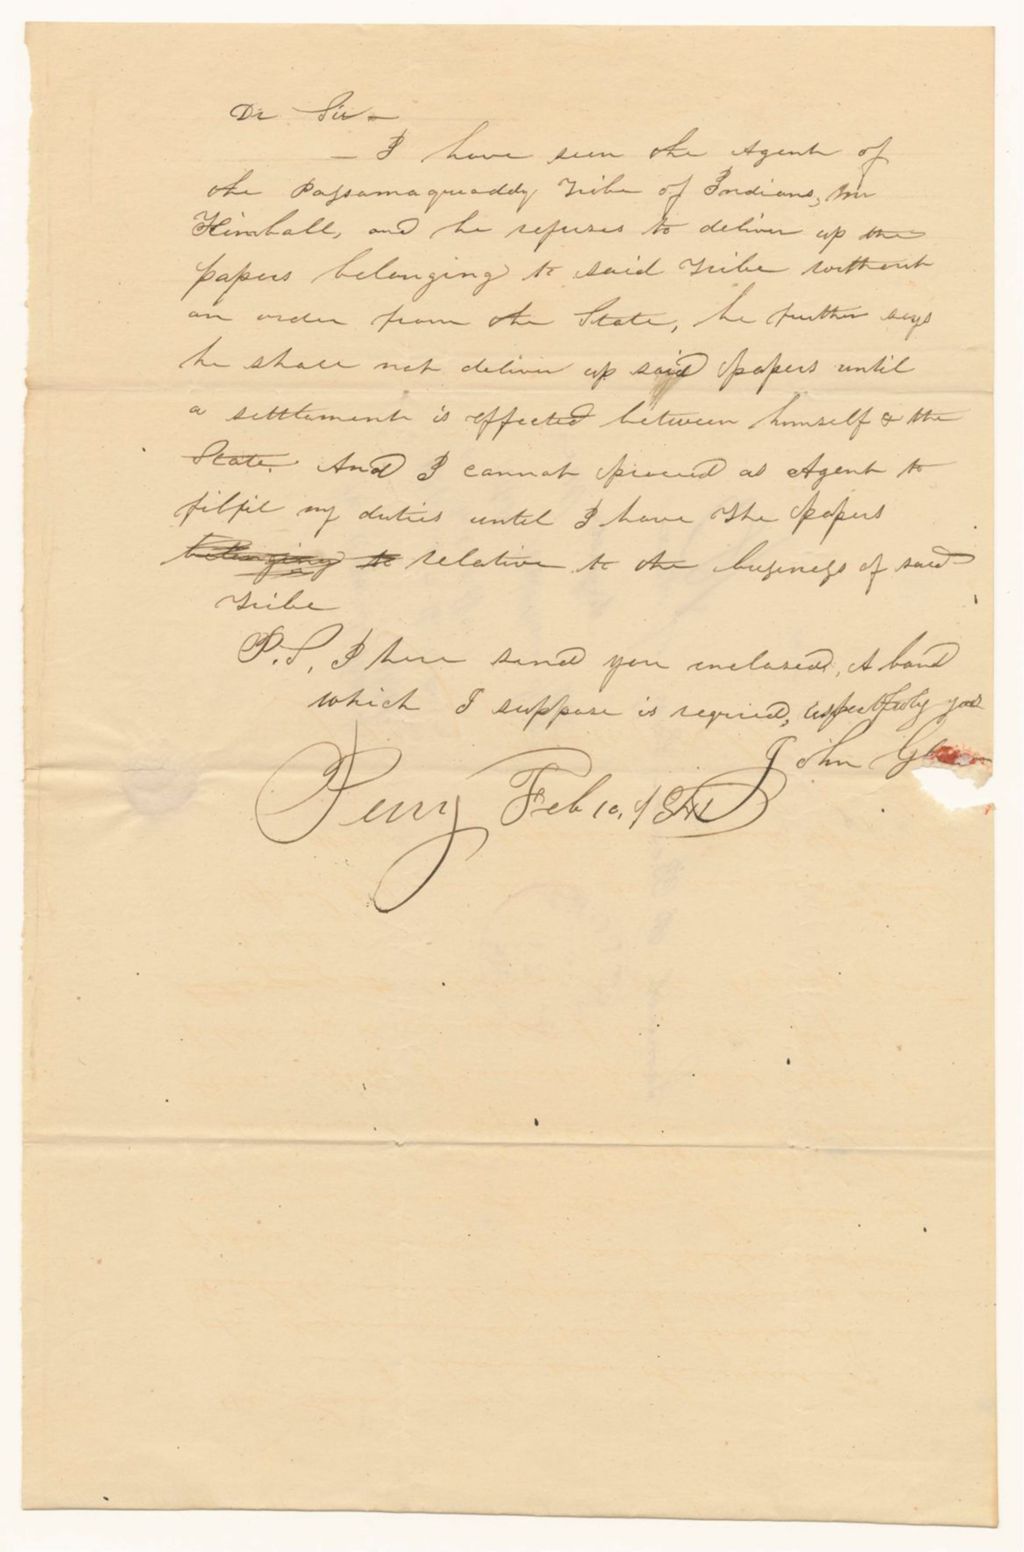 Dr Sir —
— I have seen the Agent of
the Passamaquoddy Tribe of Indians, Mr
Kimball, and he refuses to deliver up the
papers belonging to said Tribe without
an order from the State, he further says
he shall not deliver up said papers until
a settlement is effected between himself & the
State. And I cannot proceed as Agent to
fulfil my duties until I have the papers
belonging to relative to the business of said
Tribe
P.S. I here send you enclosed, A bond
which I suppose is required, respectfuly yours
John
Perry Feb 10, 1841